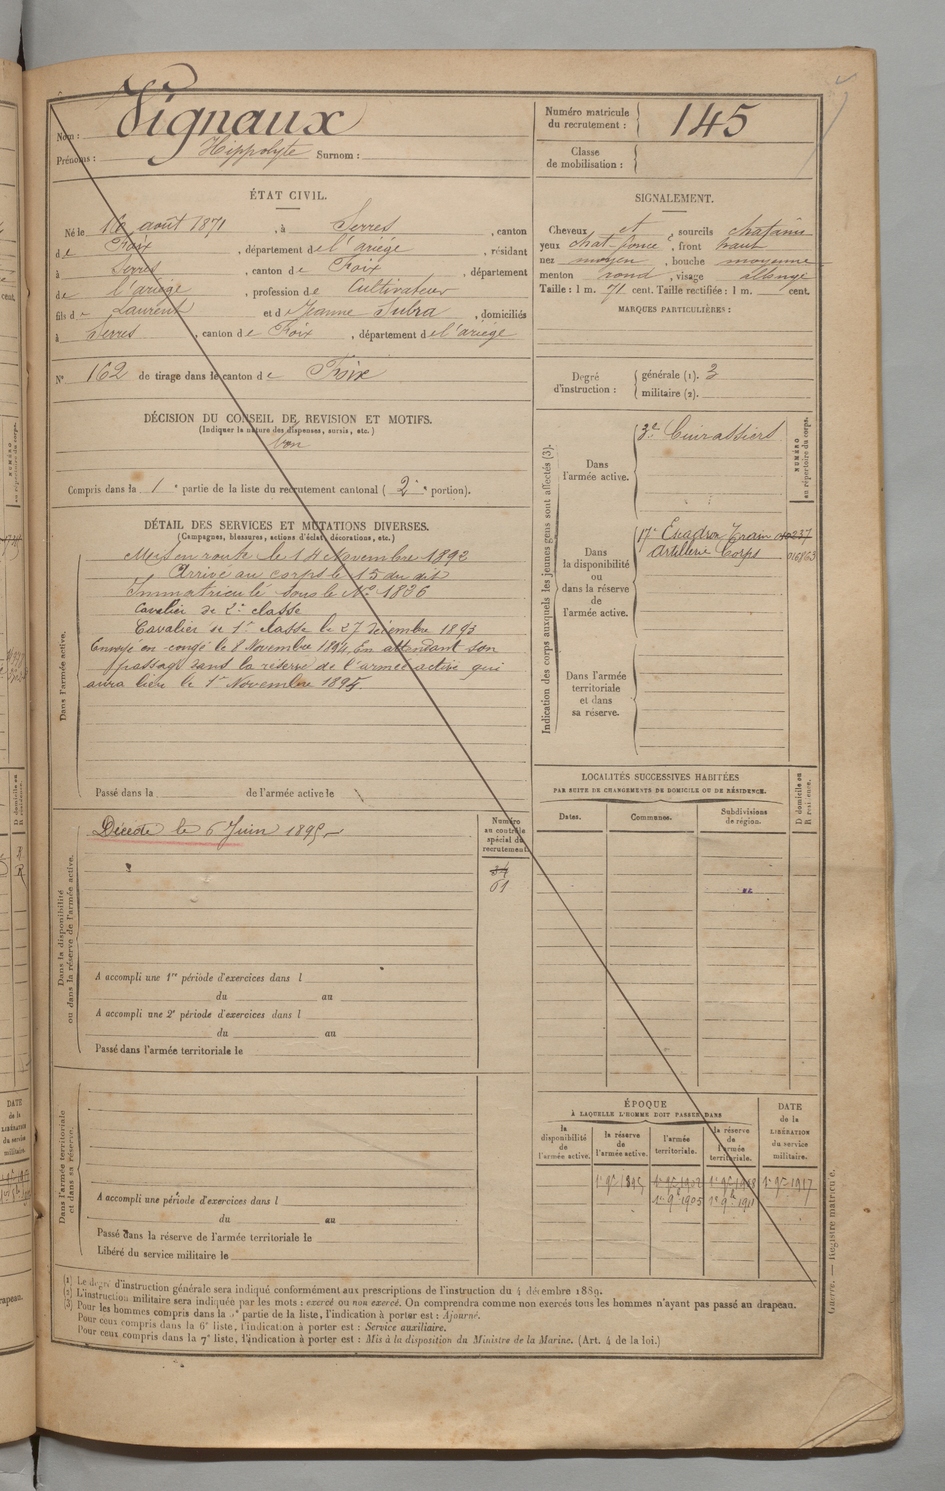 Nom : Vignaux
Prénoms : Hippolyte Surnom :
Numéro matricule du recrutement : 145
Classe de mobilisation :
ÉTAT CIVIL.
Né le 16 août 1871, à Serres, canton
de Foix, département de l'ariège, résidant
à Serres, canton de Foix, département
de l'ariège, profession de Cultivateur
fils de Laurent et de Jeanne Subra, domiciliés
à Serres, canton de Foix, département de l'ariège
N° 162 de tirage dans le canton de Foix
SIGNALEMENT.
Cheveux et sourcils chatains
yeux chat foncé, front haut
nez moyen, bouche moyenne
menton rond, visage allongé
Taille : 1 m. 71 cent. Taille rectifiée : 1 m. cent.
MARQUES PARTICULIÈRES :
Degré d'instruction : générale (1). 3
militaire (2).
DÉCISION DU CONSEIL DE REVISION ET MOTIFS.
(Indiquer la nature des dispenses, sursis, etc.)
bon
Compris dans la 1e partie de la liste du recrutement cantonal (2e portion).
DÉTAIL DES SERVICES ET MUTATIONS DIVERSES.
(Campagnes, blessures, actions d'éclat, décorations, etc.)
Dans l'armée active.
Mis en route le 14 Novembre 1892
Arrivé au corps le 15 du dit
Immatriculé sous le N° 1836
Cavalier de 2e classe
Cavalier de 1e classe le 27 Décembre 1893
Envoyé en congé le 8 Novembre 1894, En attendant son
passage dans la réserve de l'armée active qui
aura lieu le 1er Novembre 1895.
Passé dans la de l'armée active le
Indication des corps auxquels les jeunes gens sont affectés (3).
NUMÉRO au répertoire du corps.
Dans l'armée active.
3e Cuirassiers
Dans la disponibilité ou dans la réserve de l'armée active.
17e Escadron Train
artillerie Corps
Dans l'armée territoriale et dans sa réserve.
LOCALITÉS SUCCESSIVES HABITÉES
PAR SUITE DE CHANGEMENTS DE DOMICILE OU DE RÉSIDENCE.
Dates. Communes. Subdivisions de région. D domicile ou R résidence.
Dans la disponibilité ou dans la réserve de l'armée active.
Numéro au contrôle spécial du recrutement.
Décédé le 6 Juin 1895
34
61
A accompli une 1re période d'exercices dans l
du au
A accompli une 2e période d'exercices dans l
du au
Passé dans l'armée territoriale le
Dans l'armée territoriale et dans sa réserve.
A accompli une période d'exercices dans l
du au
Passé dans la réserve de l'armée territoriale le
Libéré du service militaire le
ÉPOQUE
À LAQUELLE L'HOMME DOIT PASSER DANS
la disponibilité de l'armée active. la réserve de l'armée active. l'armée territoriale. la réserve de l'armée territoriale.
DATE de la LIBÉRATION du service militaire.
1er 9bre 1895 1er 9bre 1902 1er 9bre 1908 1er 9bre 1917
1er 9bre 1905 1er 9bre 1911
(1) Le degré d'instruction générale sera indiqué conformément aux prescriptions de l'instruction du 4 décembre 1889.
(2) L'instruction militaire sera indiquée par les mots : exercé ou non exercé. On comprendra comme non exercés tous les hommes n'ayant pas passé au drapeau.
(3) Pour les hommes compris dans la 5e partie de la liste, l'indication à porter est : Ajourné.
Pour ceux compris dans la 6e liste, l'indication à porter est : Service auxiliaire.
Pour ceux compris dans la 7e liste, l'indication à porter est : Mis à la disposition du Ministre de la Marine. (Art. 4 de la loi.)
Guerre. — Registre matricule.